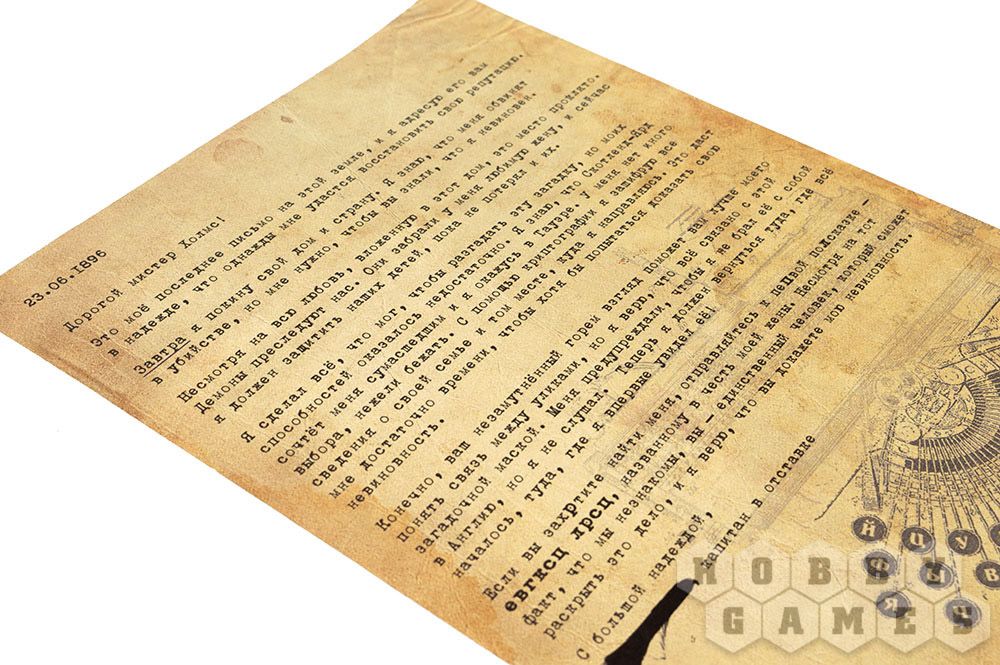 23.06.1896
Дорогой мистер Холмс!
Это моё последнее письмо на этой земле, и я адресую его вам
в надежде, что однажды мне удастся восстановить свою репутацию.
Завтра я покину свой дом и страну. Я знаю, что меня обвинят
в убийстве, но мне нужно, чтобы вы знали, что я невиновен.
Несмотря на всю любовь, вложенную в этот дом, это место проклято.
Демоны преследуют нас. Они забрали у меня любимую жену, и сейчас
я должен защитить наших детей, пока не потерял и их.
Я сделал всё, что мог, чтобы разгадать эту загадку, но моих
способностей оказалось недостаточно. Я знаю, что Скотленд-Ярд
сочтёт меня сумасшедшим и я окажусь в Тауэре. У меня нет иного
выбора, нежели бежать. С помощью криптографии я зашифрую все
сведения о своей семье и том месте, куда я направляюсь. Это даст
мне достаточно времени, чтобы хотя бы попытаться доказать свою
невиновность.
Конечно, ваш незамутнённый горем взгляд поможет вам лучше моего
понять связь между уликами, но я верю, что всё связано с этой
загадочной маской. Меня предупреждали, чтобы я не брал её с собой
в Англию, но я не слушал. Теперь я должен вернуться туда, где всё
началось, туда, где я впервые увидел её.
Если вы захртите найти меня, отправляйтесь к пепвой подсказке –
евгксц лрсц, названному в честь моей жены. Несмотря на тот
факт, что мы незнакомы, вы – единственный человек, который сможет
раскрыть это дело, и я верю, что вы докажете мою невиновность.
С большой надеждой,
капитан в отставке
Й Ц У
Ф Ы В
Я Ч
HOBBY
GAMES